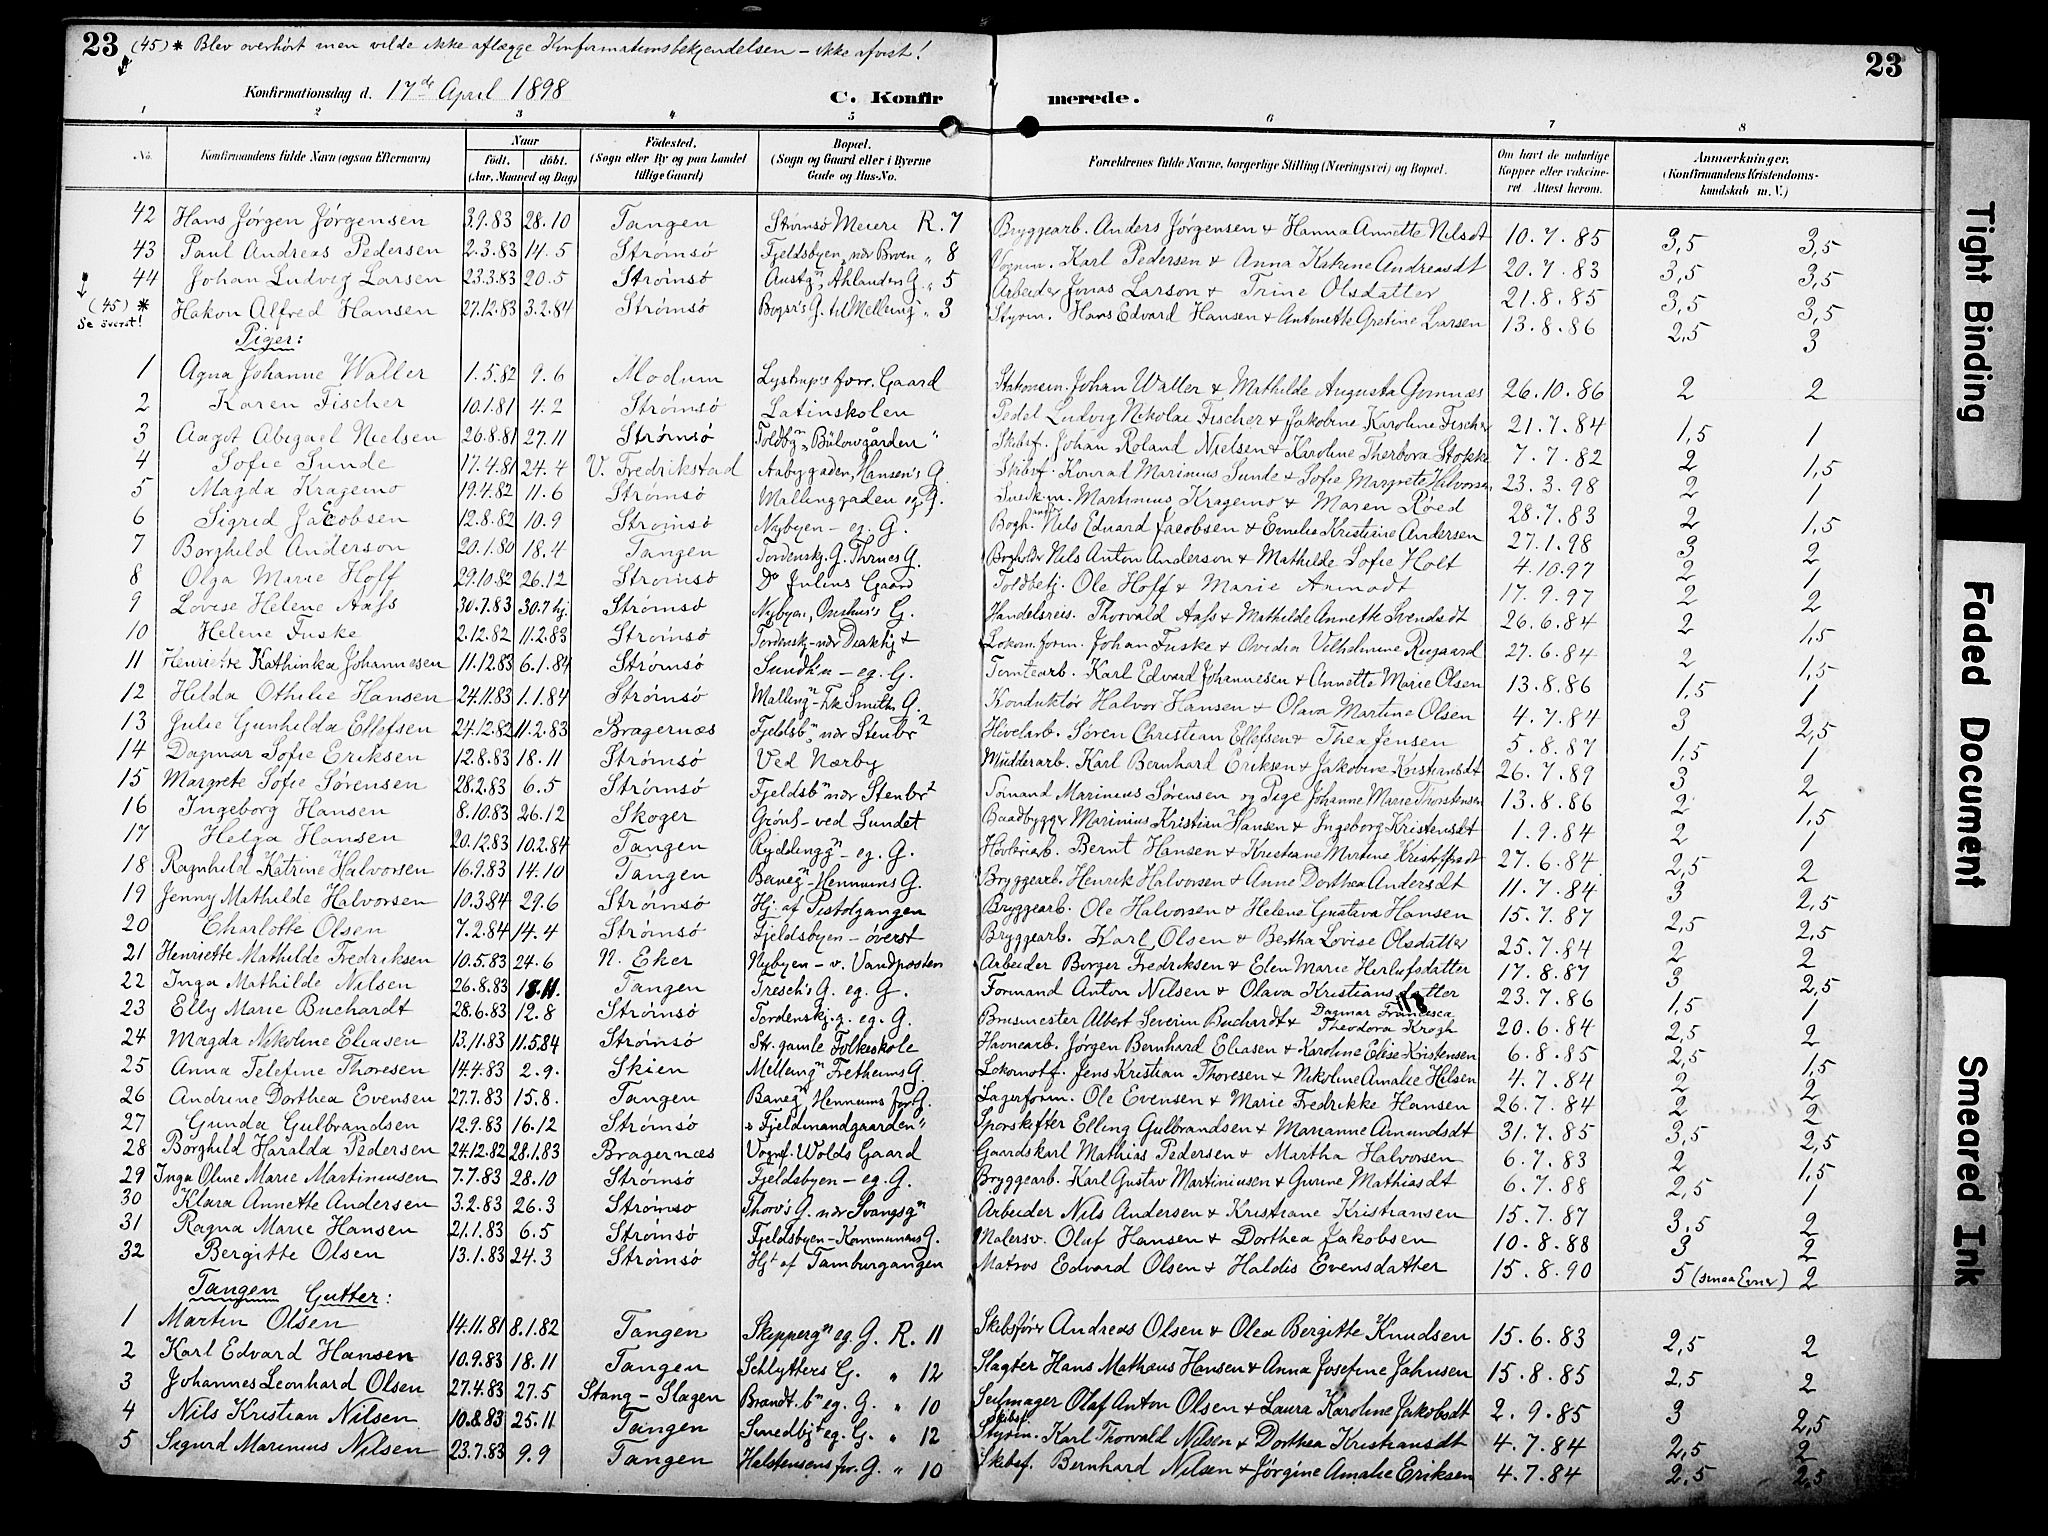 23 (45) * Blev overhørt men vilde ikke aflægge Konfirmationsbekjendelsen – ikke afvist! 23
Konfirmationsdag d. 17de April 1898 C. Konfir merede.
1 2 3 4 5 6 7 8
No. Konfirmandens fulde Navn (ogsaa Efternavn) Naar født. døbt. (Aar, Maaned og Dag) Fødested. (Sogn eller By og paa Landet tillige Gaard) Bopæl. (Sogn og Gaard eller i Byerne Gade og Hus-No. Forældrenes fulde Navne, borgerlige Stilling (Næringsvei) og Bopæl. Om havt de naturlige Kopper eller vakcineret Attest herom. Anmærkninger. (Konfirmandens Kristendomskundskab m. V.)
42 Hans Jørgen Jørgensen 3.9.83 28.10 Tangen Strømsø Meieri R. 7 Bryggearb. Anders Jørgensen & Hanna Annette Nilsdt 10.7.85 3,5 3,5
43 Paul Andreas Pedersen 2.3.83 14.5 Strømsø Fjeldsbyen, nær Broen „ 8 Vognm. Karl Pedersen & Anna Katrine Andreasdt 20.7.83 3,5 3,5
44 Johan Ludvig Larsen 23.3.83 20.5 Strømsø Austgn, Athlanders G. „ 5 Arbeider Jonas Larson & Trine Olsdatter 21.8.85 3,5 3,5
(45) * Se øverst! Hakon Alfred Hansen 27.12.83 3.2.84 Strømsø G. til Melleng „ 3 Styrm. Hans Edvard Hansen & Antonette Gretine Larsen 13.8.86 2,5 3
Piger:
1 Agna Johanne Waller 1.5.82 9.6 Modum Lystrup's forr. Gaard Stationsm. Johan Waller & Mathilde Augusta Gomnæs 26.10.86 2 2
2 Karen Fischer 10.1.81 4.2 Strømsø Latinskolen Pedel Ludvig Nikolai Fischer & Jakobine Karoline Fischer 21.7.84 1,5 1
3 Aagot Abigael Nielsen 26.8.81 27.11 Strømsø Toldbn „Bülowgården" Skibsf. Johan Roland Nielsen & Karoline Therbora Stokke 7.7.82 2 1,5
4 Sofie Sunde 17.4.81 24.4 V. Fredrikstad Aabygaden, Hansen's G. Skibsf. Konrad Marinius Sunde & Sofie Margrete Halvorsen 23.3.98 2 1
5 Magda Kragemo 19.4.82 11.6 Strømsø Mallinggaden eg. G. Snedkm. Martinius Kragemo & Maren Røed 28.7.83 2 1,5
6 Sigrid Jacobsen 12.8.82 10.9 Strømsø Nybyen – eg. G. Bogh. Nils Edvard Jacobsen & Emilie Kristiane Andersen 27.1.98 3 2
7 Borghild Anderson 20.1.80 18.4 Tangen Tordenskj. G. Thrnes G. Bogholder Nils Anton Anderson & Mathilde Sofie Holt 4.10.97 2 1
8 Olga Marie Hoff 29.10.82 26.12 Strømsø Do Julius Gaard Toldbetj. Ole Hoff & Marie Arnodt 17.9.97 2 2
9 Lovise Helene Aass 30.7.83 30.7 hj. Strømsø Nybyen, Onshus's G. Handelsreis. Thorvald Aass & Mathilde Annette Svendsdt 26.6.84 2 1,5
10 Helene Fuske 2.12.82 11.2.83 Strømsø Tordensk. nær Lokom.form. Johan Fuske & Ovidia Vilhelmine Rugaard 27.6.84 2 1,5
11 Henriette Kathinka Johannesen 11.12.83 6.1.84 Strømsø Sundhn – eg. G. Tomtearb. Karl Edvard Johannesen & Annette Marie Olsen 13.8.86 1,5 1
12 Hilda Othilie Hansen 24.11.83 1.1.84 Strømsø Mallingn – Fk Smiths G. Konduktør Halvor Hansen & Olava Martine Olsen 4.7.84 3 2,5
13 Julie Gunhilda Ellefsen 24.12.82 11.2.83 Bragernæs Fjeldsbn nær Stenbr2 Høvelarb. Søren Christian Ellefsen & Thea Jensen 5.8.87 1,5 1
14 Dagmar Sofie Eriksen 12.8.83 18.11 Strømsø Ved Nærby Mudderarb. Karl Bernhard Eriksen & Jakobine Kristiansdt 26.7.89 3 2
15 Margrete Sofie Sørensen 28.2.83 6.5 Strømsø Fjeldsbn nær Stenbr2 Formand Marinius Sørensen og Pige Johanne Marie Thorstensen 13.8.86 2 1,5
16 Ingeborg Hansen 8.10.83 26.12 Skoger Grønl – ved Sundet Baadbygger Marinius Kristian Hansen & Ingeborg Kristensdt 1.9.84 2 1
17 Helga Hansen 20.12.83 10.2.84 Tangen Ryddinggn – eg. G. Høvleriarb. Bernt Hansen & Kristiane Martine Kristoffersdt 27.6.84 2,5 2
18 Ragnhild Katrine Halvorsen 16.9.83 14.10 Tangen Banegn – Hennums G. Bryggearb. Henrik Halvorsen & Anne Dorthea Andersdt 11.7.84 3 2,5
19 Jenny Mathilde Halvorsen 10.3.84 29.6 Strømsø Hj. af Pistolgangen Bryggearb. Ole Halvorsen & Helene Gustava Hansen 15.7.87 2,5 2,5
20 Charlotte Olsen 7.2.84 14.4 Strømsø Fjeldsbyen – øverst Bryggearb. Karl Olsen & Bertha Lovise Olsdatter 25.7.84 2 2
21 Henriette Mathilde Fredriksen 10.5.83 24.6 N. Eker Nybyen – v. Vandposten Arbeider Borger Fredriksen & Elen Marie Herlufsdatter 17.8.87 3 2,5
22 Inga Mathilde Nilsen 26.8.83 18.11. Tangen Tresch's G. eg. G. Formand Anton Nilsen & Olava Kristiansdatter 23.7.86 1,5 1
23 Elly Marie Buchardt 28.6.83 12.8 Strømsø Tordenskj. g. eg. G. Brusmester Albert Severin Buchardt & Dagmar Francesca Theodora Krogh 20.6.84 2,5 2
24 Magda Nikoline Eliasen 13.11.83 11.5.84 Strømsø Str. gamle Folkeskole Havnearb. Jørgen Bernhard Eliasen & Karoline Elise Kristensen 6.8.85 2,5 1,5
25 Anna Telefine Thoresen 14.4.83 2.9. Skien Mellengn Fretheims G. Lokomotf. Jens Kristian Thoresen & Nikoline Amalie Hilsen 4.7.84 2 2
26 Andrine Dorthea Evensen 27.7.83 15.8. Tangen Banegn Hennums for. G. Lagerform. Ole Evensen & Marie Fredrikke Hansen 26.7.84 2 2
27 Gunda Gulbrandsen 12.9.83 16.12 Strømsø „Fjeldmandgaarden" Sporskifter Elling Gulbrandsen & Marianne Amundsdt 31.7.85 3,5 2,5
28 Borghild Haralda Pedersen 24.12.82 28.1.83 Bragernæs Vognf. Wolds Gaard Gaardskarl Mathias Pedersen & Martha Halvorsen 6.7.83 2 1,5
29 Inga Oline Marie Martiniusen 7.7.83 28.10 Strømsø Fjeldsbyen – eg. G. Bryggearb. Karl Gustav Martiniusen & Gurine Mathiasdt 6.7.88 2,5 1
30 Klara Annette Andersen 3.2.83 26.3 Strømsø Thors's G. nær Svangsgn Arbeider Nils Andersen & Kristiane Kristiansen 15.7.87 3,5 2
31 Ragna Marie Hansen 21.1.83 6.5 Strømsø Fjeldsbyen – Kommunens G. Malersv. Oluf Hansen & Dorthea Jakobsen 10.8.88 3 2
32 Bergitte Olsen 13.1.83 24.3 Strømsø Hjt af Tamburgangen Matros Edvard Olsen & Haldis Evensdatter 15.8.90 5 (smaa Evner) 2
Tangen Gutter:
1 Martin Olsen 14.11.81 8.1.82 Tangen Skeppergn eg. G. R. 11 Skibsfører Andreas Olsen & Olea Bergitte Knudsen 15.6.83 2,5 2
2 Karl Edvard Hansen 10.9.83 18.11 Tangen Schlytters G. „ 12 Slagter Hans Mathæus Hansen & Anna Josefine Jahnsen 15.8.85 2,5 2
3 Johannes Leonhard Olsen 27.4.83 27.5 Stang – Slagen Brandt. bn eg. G. „ 10 Seilmager Olaf Anton Olsen & Laura Karoline Jakobsdt 2.9.85 3 2,5
4 Nils Kristian Nilsen 10.8.83 25.11 Tangen Smedbjt eg. G. „ 12 Skibsf. Styrm. Karl Thorvald Nilsen & Dorthea Kristiansdt 4.7.84 2,5 2
5 Sigurd Marinius Nilsen 23.7.83 9.9 Tangen Halstensens for. G. „ 10 Skibsf. Bernhard Nilsen & Jørgine Amalie Eriksen 4.7.84 2,5 2,5
Tight Binding
Faded Document
Smeared Ink